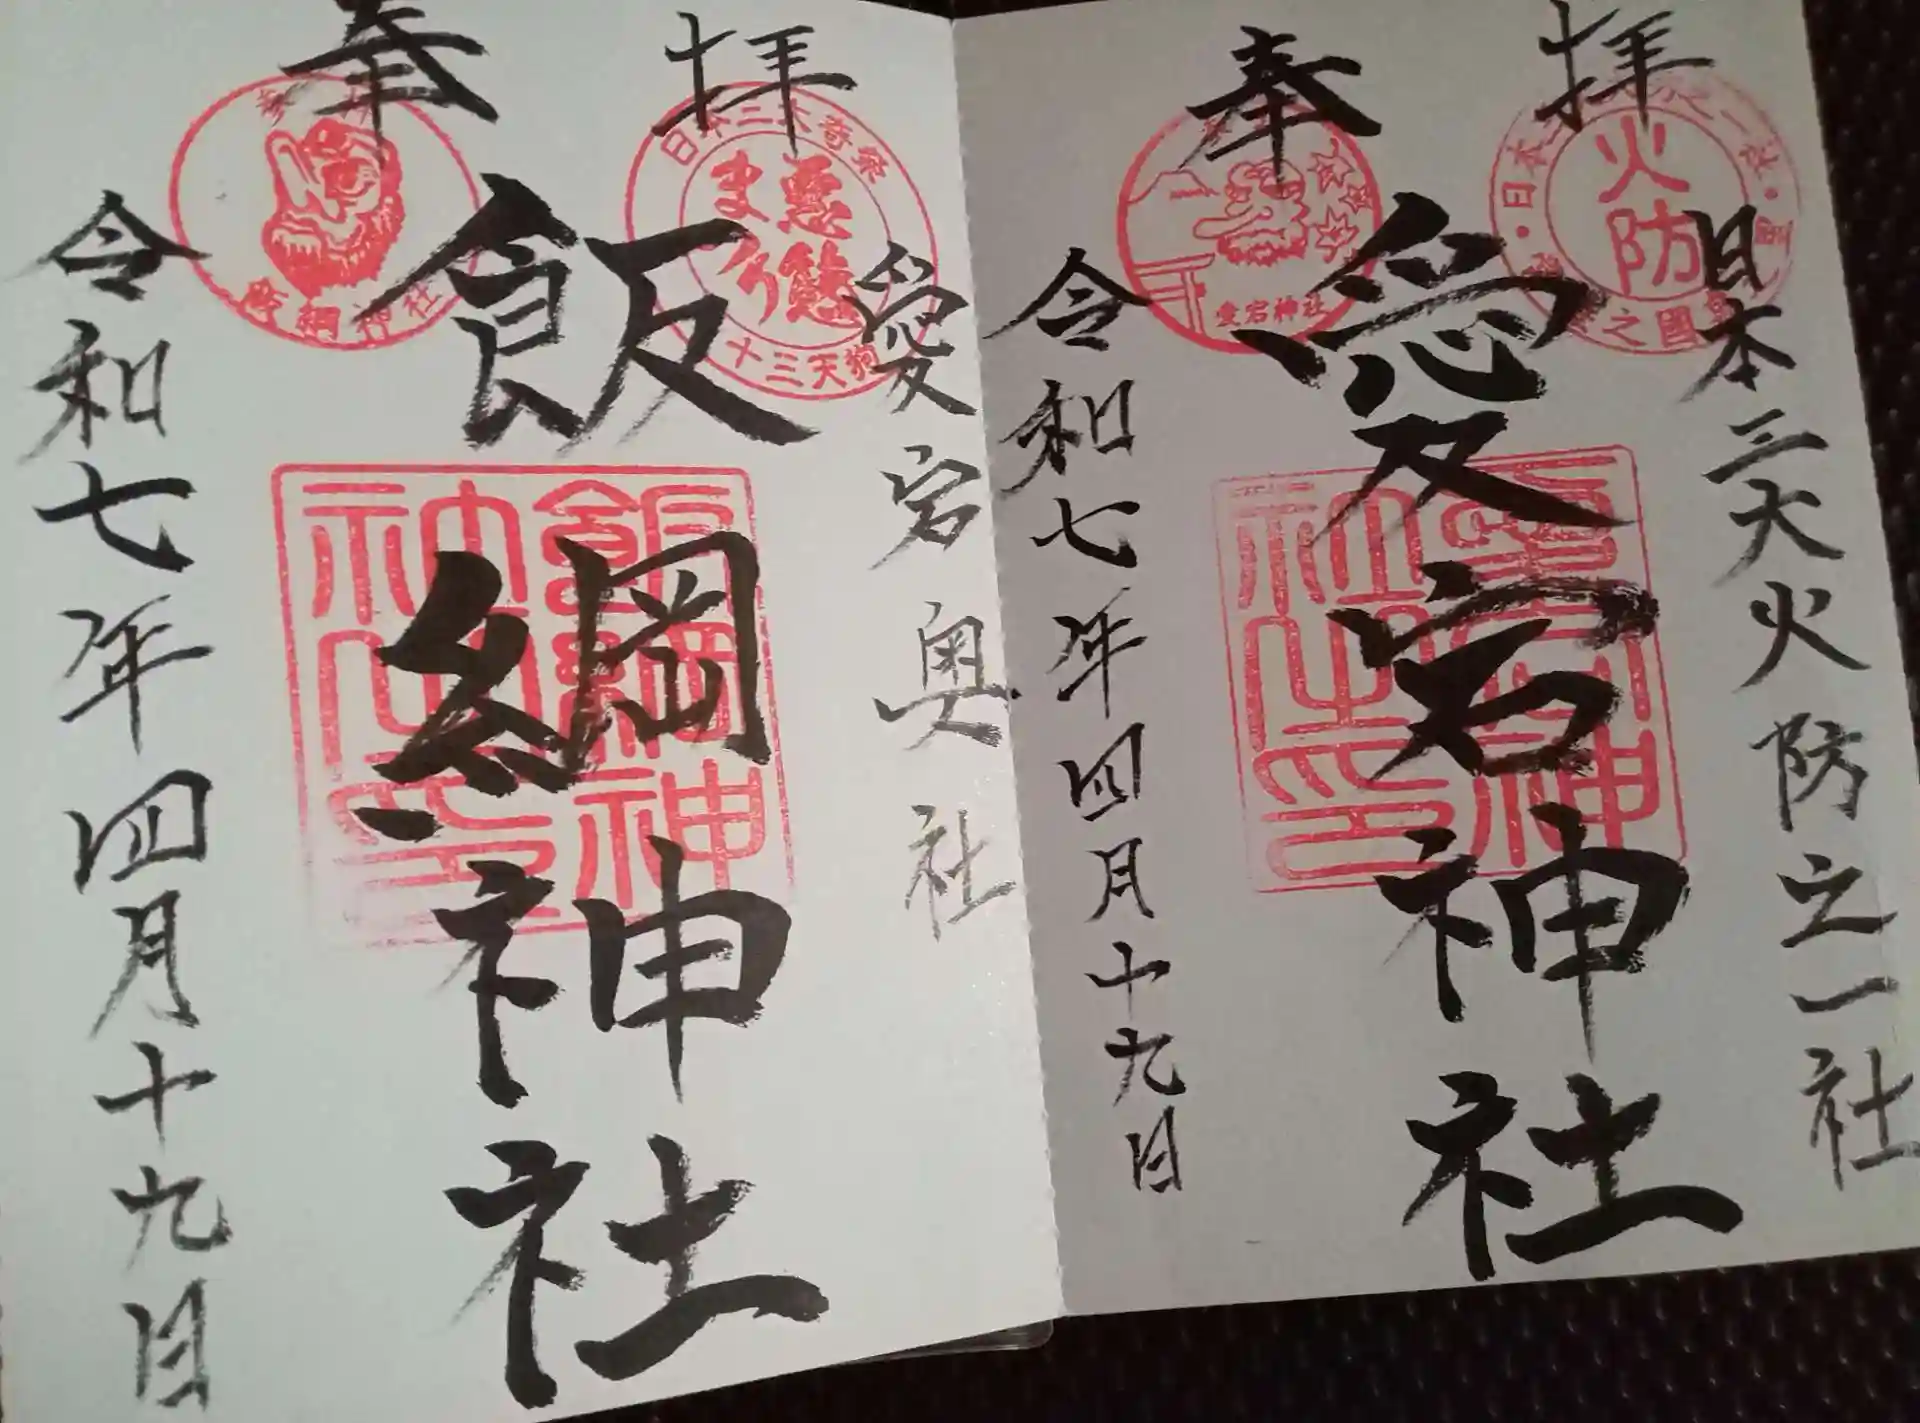 奉拝
日本三大火防之一社
愛宕神社
令和七年四月十九日
火防
愛宕神社
奉拝
愛宕奥社
飯綱神社
令和七年四月十九日
日本三大奇祭
悪態
まつり
十三天狗
飯綱神社
飯綱神
社之印